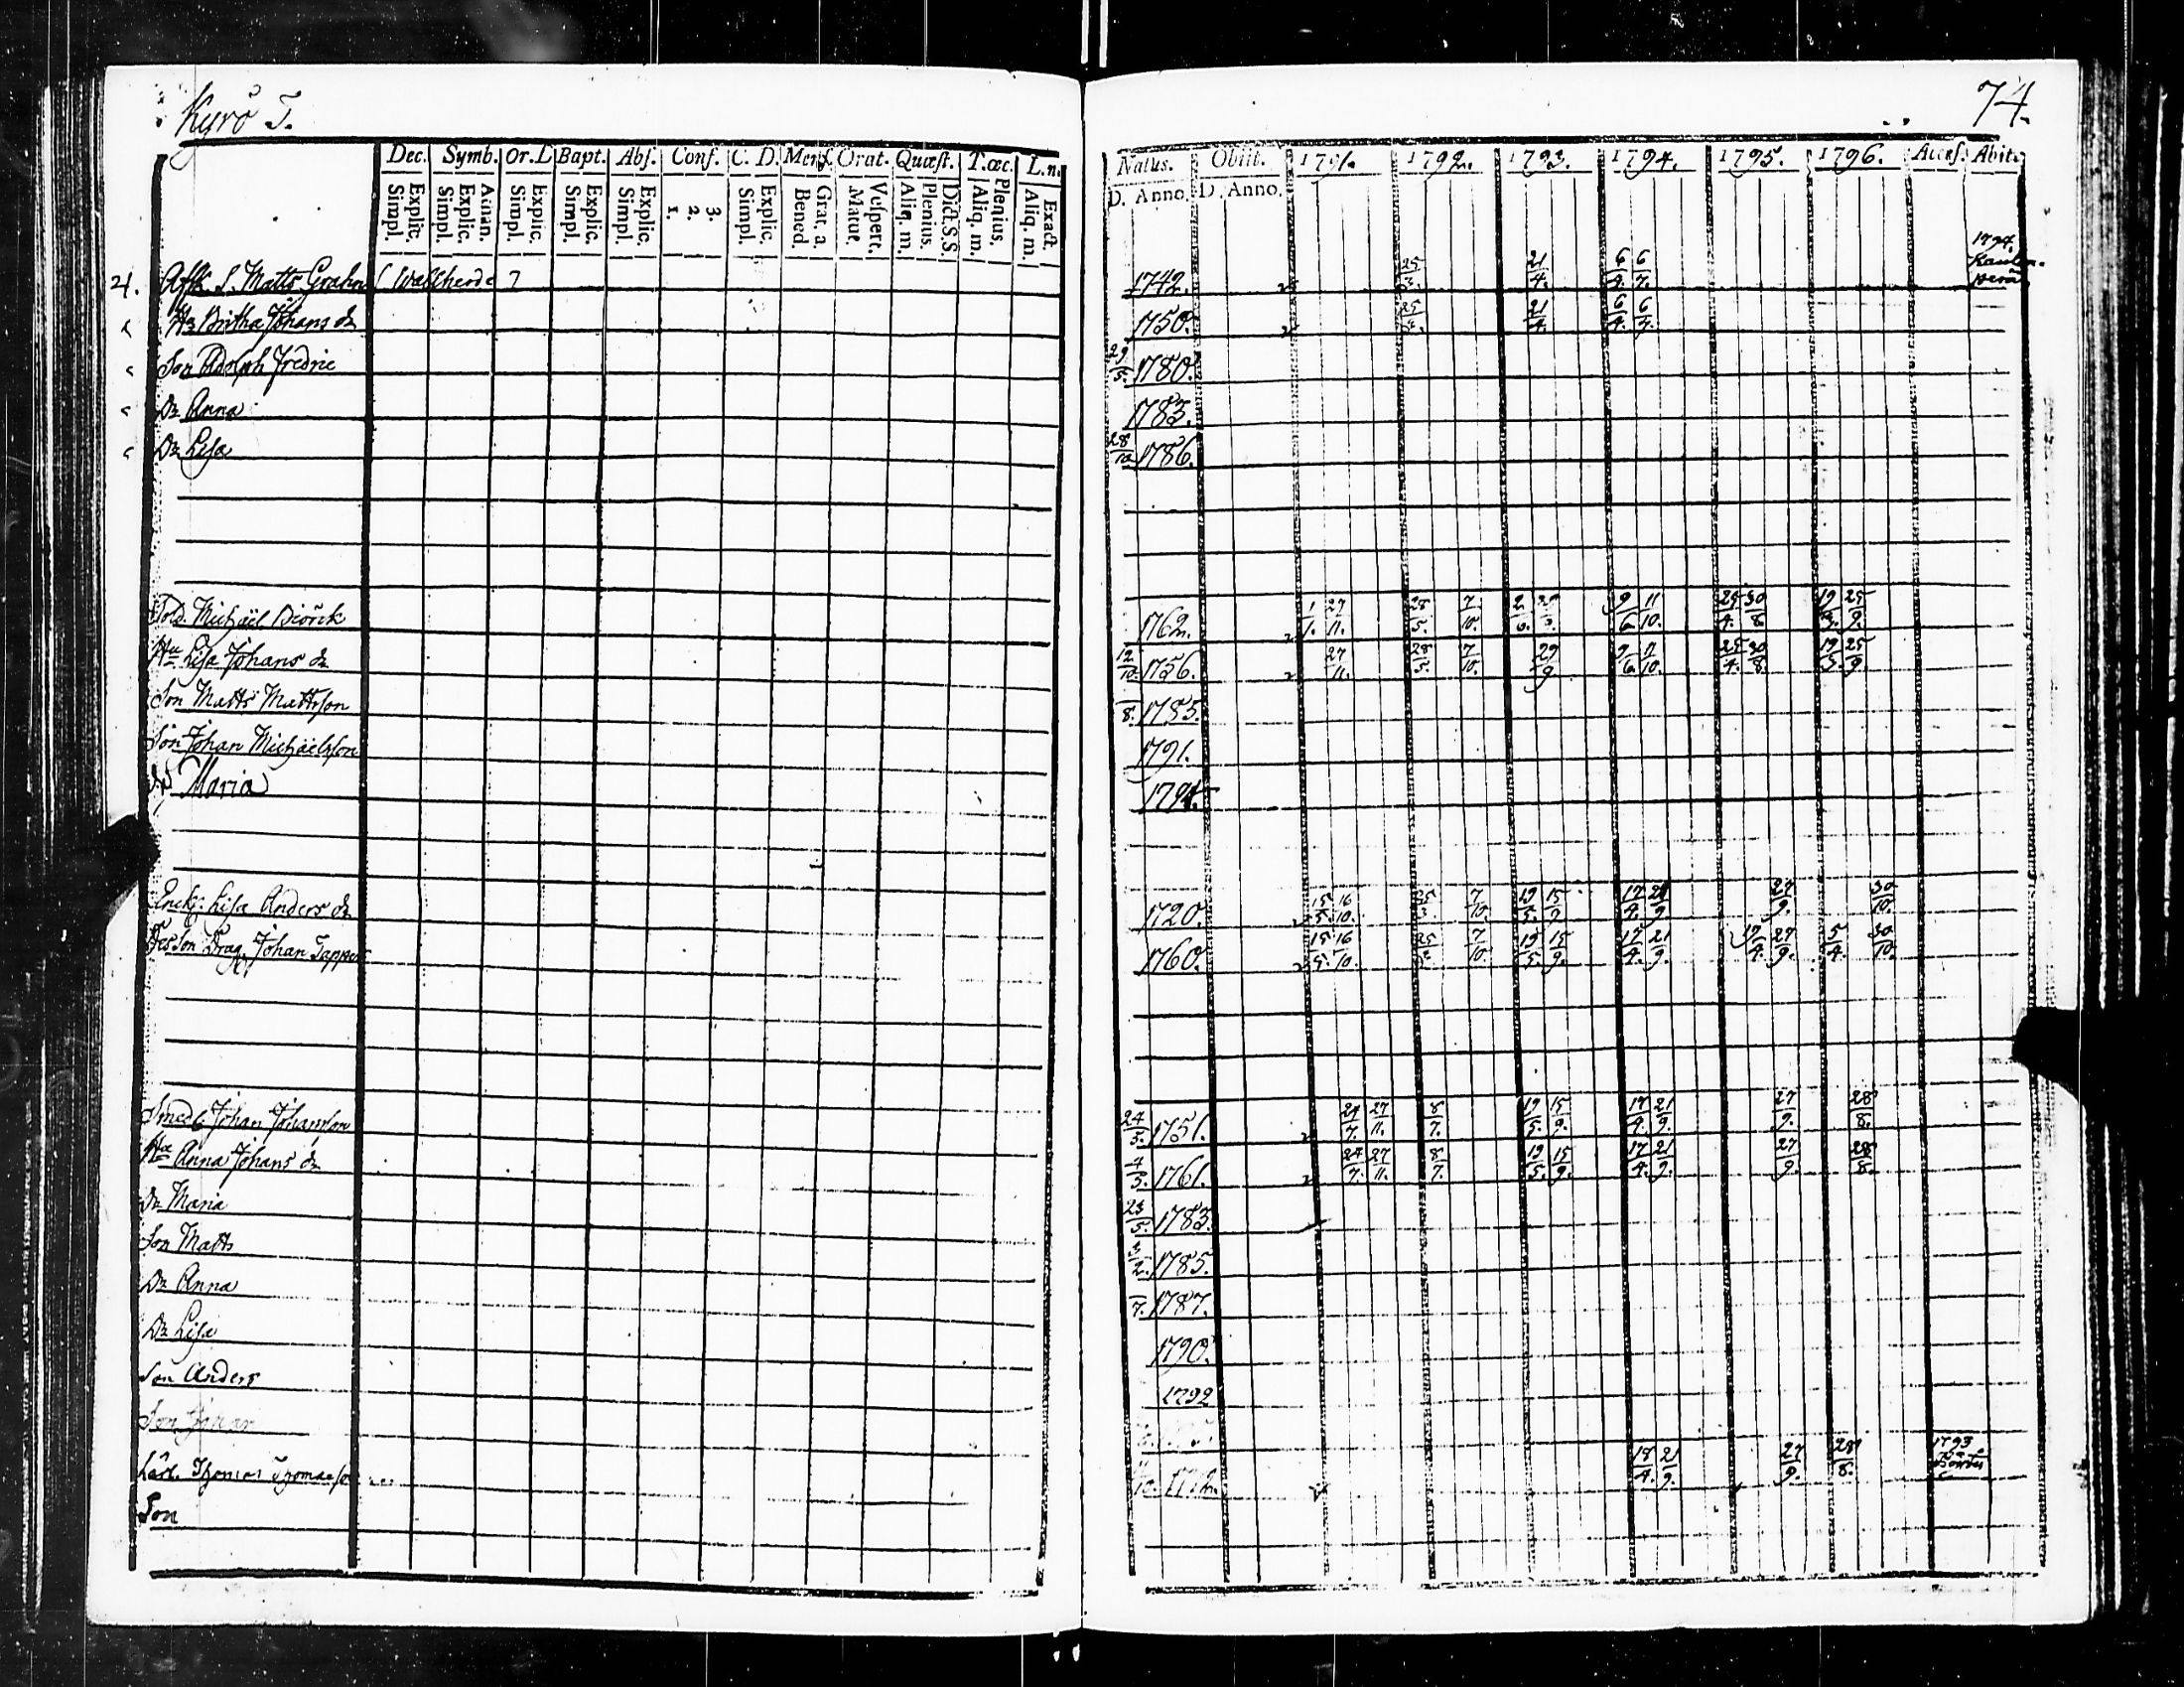 Kyrö T.
74.
Dec. Symb. Or. D Bapt. Abs. Conf. C. D. Mens. Orat. Quæst. T. œc. L. n.
Simpl. Explic. Simpl. Explic. Athan. Simpl. Explic. Simpl. Explic. Simpl. Explic. 1. 2. 3. Simpl. Explic. Bened. Grat. a. Matut. Vespert. Aliq. m. Plenius. Dict. S.S. Aliq. m. Plenius. Aliq. m. Exact.
Natus. Obiit. 1791. 1792. 1793. 1794. 1795. 1796. Access. Abit.
D. Anno. D. Anno.
1794.
21. Matts Grahn 1742. 25/3. 21/4. 6/4. 6/7.
Britha Johans dr 1750. 25/3. 21/4. 6/4. 6/7.
Son Adolph Fredric 29/5. 1780.
Dr Anna 1783.
Dr Lisa 28/10 1786.
Sold. Michäel Biörck 1762. 1/1. 27/11. 28/5. 7/10. 9/6. 11/10. 25/4. 30/8. 19/3. 25/9.
Hu Lisa Johans dr 12/10. 1756. 27/11. 28/5. 7/10. 29/9 9/6. 11/10. 25/4. 30/8. 19/3. 25/9.
Son Matts Mattsson 8. 1785.
Son Johan Michäelsson 1791.
Dr Maria 1794.
Enck. Lisa Anders dr 1720. 15/5. 16/10. 25/3. 7/10. 19/5. 15/9 17/4. 21/9 27/9. 30/10.
Des Son Drag. Johan Tapper 1760. 15/5. 16/10. 25/3. 7/10. 19/5. 15/9. 17/4. 21/9. 27/9. 5/4. 30/10.
Smed Johan Johansson 24/5. 1751. 24/7. 27/11. 8/7. 19/5. 15/9. 17/4. 21/9. 27/9. 28/8.
Hu Anna Johans dr 4/5. 1761. 24/7. 27/11. 8/7. 19/5. 15/9. 17/4. 21/9. 27/9. 28/8.
Dr Maria 23/5. 1783.
Son Matts 3/2. 1785.
Dr Anna 7. 1787.
Dr Lisa 1790.
Son Anders 1792
Son Johan
Thomas Thomasson 21/9. 27/9. 28/8. 1793
Son